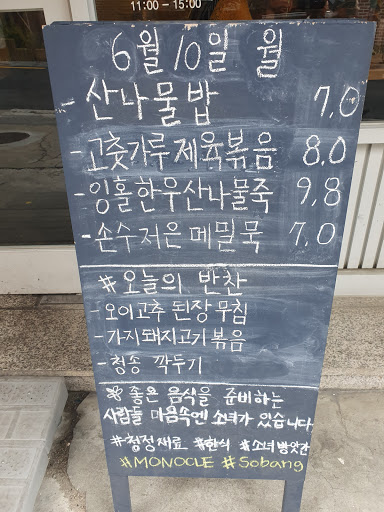 11:00 - 15:00
6월 10일 월
- 산나물밥 7,0
- 고춧가루제육볶음 8,0
- 잉홀한우산나물죽 9,8
- 손수저은메밀묵 7,0
#오늘의 반찬
- 오이고추 된장무침
- 가지돼지고기볶음
- 청송 깍두기
좋은 음식을 준비하는
사람들 마음속엔 소녀가 있습니다
#청정재료 #한식 #소녀방앗간
#MONOCLE #Sobang